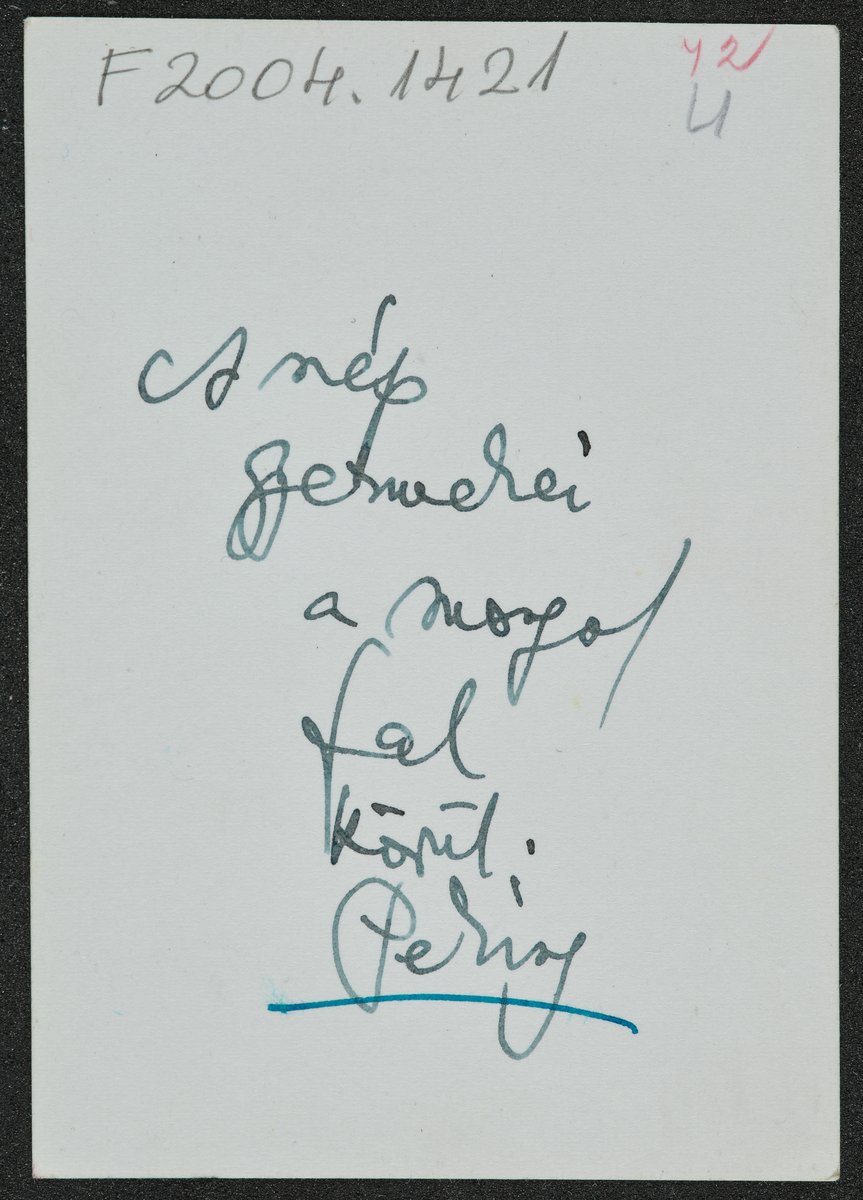 F 2004.1421
42
4
A nép
gyermekei
a mongol
fal
körül.
Peking